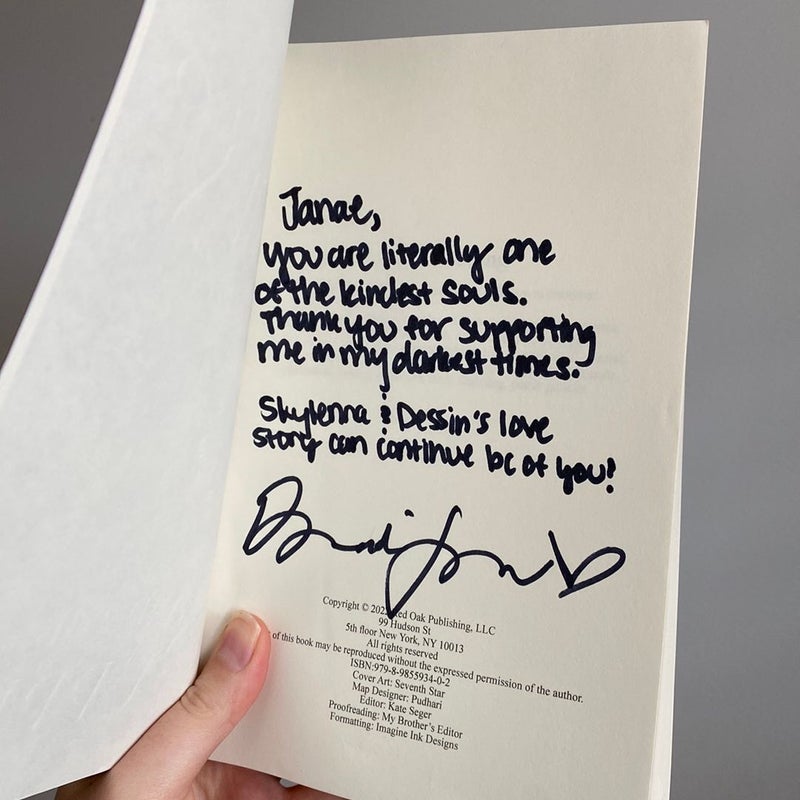 Janae,
you are literally one
of the kindest souls.
Thank you for supporting
me in my darkest times.
Skylenna & Dessin's love
story can continue bc of you!
Copyright © 202 Red Oak Publishing, LLC
99 Hudson St
5th floor New York, NY 10013
All rights reserved
of this book may be reproduced without the expressed permission of the author.
ISBN:979-8-9855934-0-2
Cover Art: Seventh Star
Map Designer: Pudhari
Editor: Kate Seger
Proofreading: My Brother's Editor
Formatting: Imagine Ink Designs